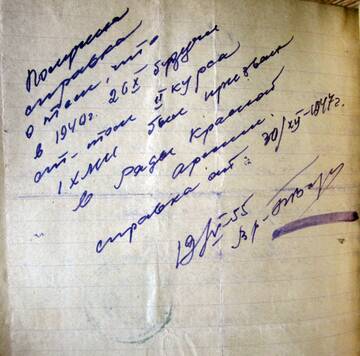 Получил
справка
о том, что
в 1940г. 26 X будучи
ст-том II курса
1 ХМИ был призван
в ряды Красной
Армии.
справка от 30/XII-1947г.
19/V-55
Вр-